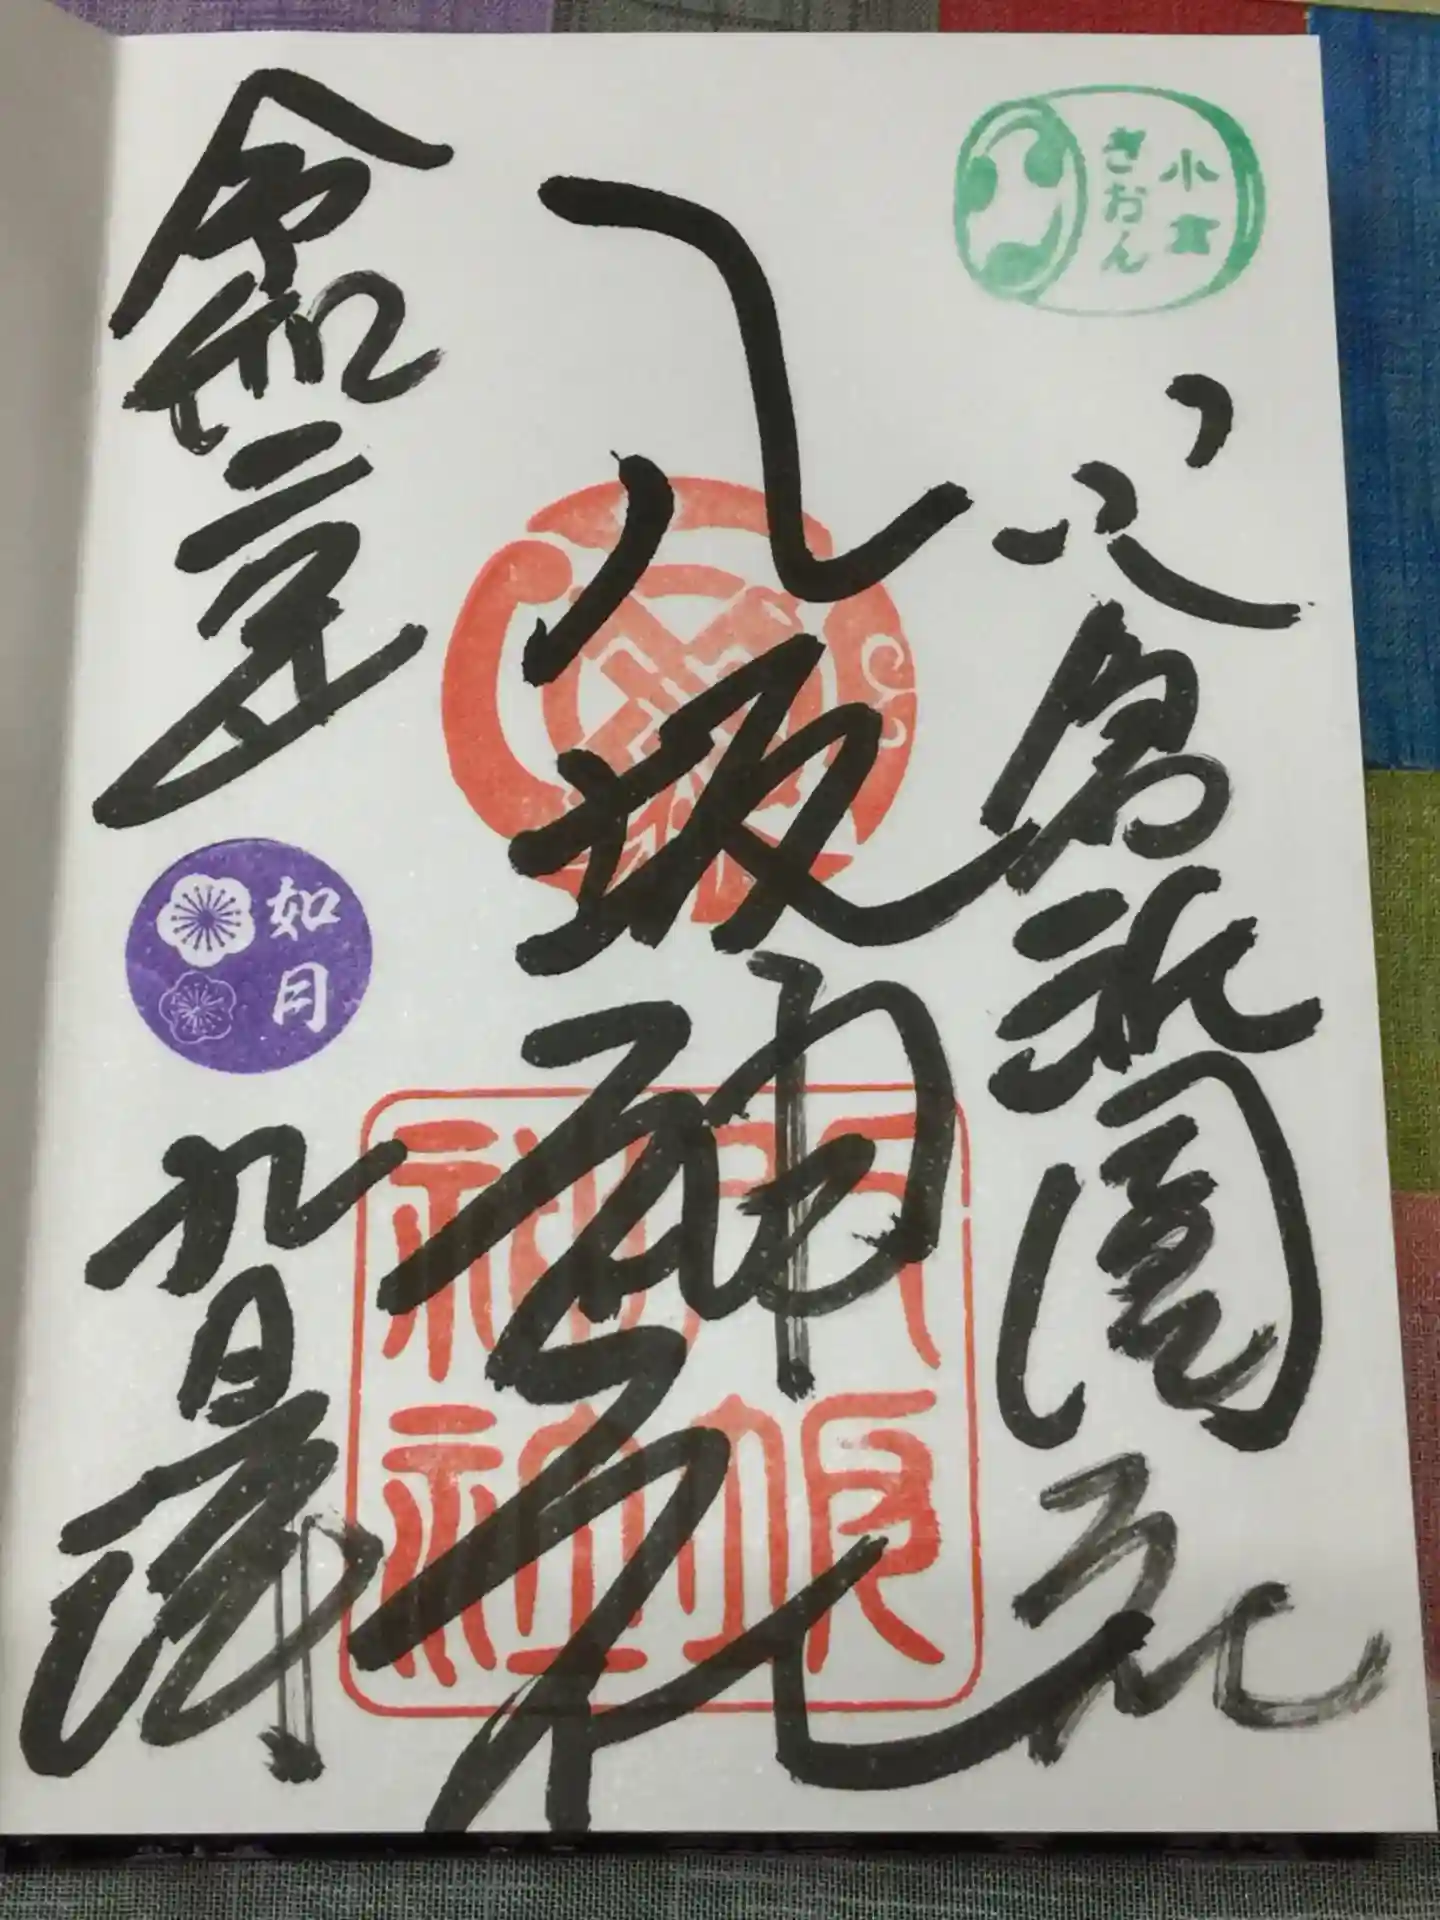 小倉
ぎおん
小倉祇園社
八坂神社
八坂
神社
令和二年
如月
九日